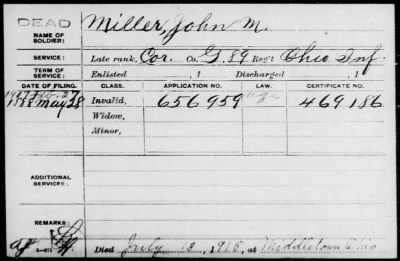 DEAD
NAME OF SOLDIER: Miller, John M.
SERVICE: Late rank, Cor. Co. G. 89 Reg't Ohio Inf.
TERM OF SERVICE: Enlisted , 1 Discharged , 1
DATE OF FILING. CLASS. APPLICATION NO. LAW. CERTIFICATE NO.
May 28 Invalid, 656959 469186
Widow,
Minor,
ADDITIONAL SERVICES:
REMARKS:
Died July 13, 1915, at Middletown Ohio